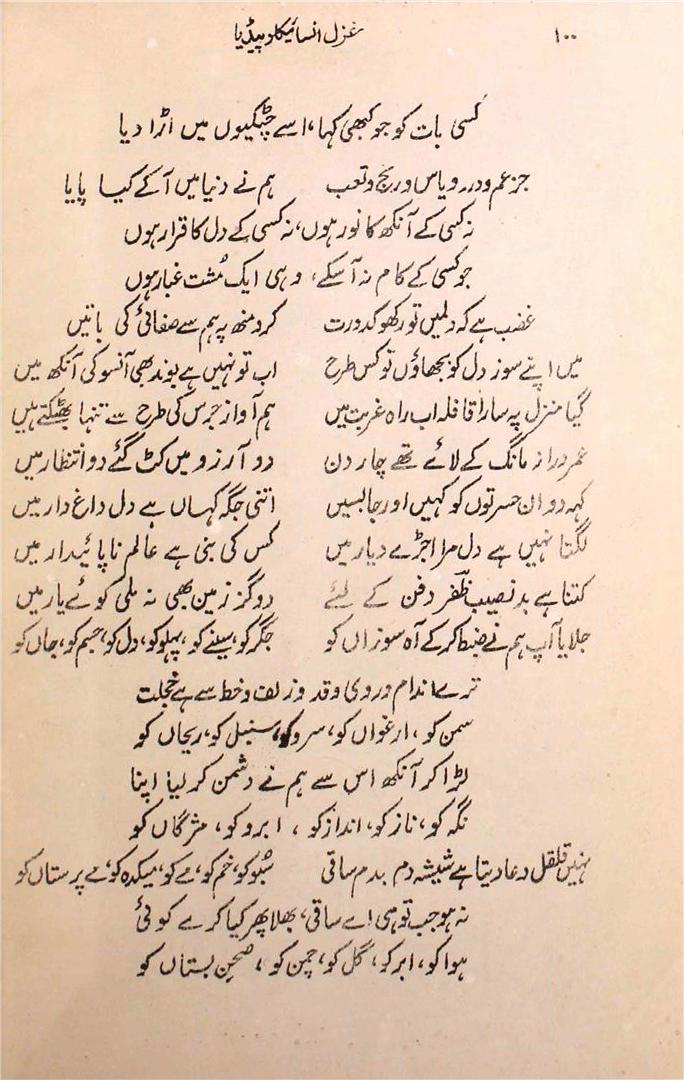 ۱۰۰ غزل انسائیکلوپیڈیا
کسی بات کو جو کبھی کہا، اسے چٹکیوں میں اڑا دیا
جز غم و درد و یاس و رنج و تعب ہم نے دنیا میں آ کے کیا پایا
نہ کسی کے آنکھ کا نور ہوں، نہ کسی کے دل کا قرار ہوں
جو کسی کے کام نہ آ سکے، وہی ایک مُشت غبار ہوں
غضب ہے کہ دلمیں تو رکھو کدورت کرو منھ پہ ہم سے صفائی کی باتیں
میں اپنے سوز دل کو بجھاؤں تو کس طرح اب تو نہیں ہے بوند بھی آنسو کی آنکھ میں
گیا منزل پہ سارا قافلہ اب راہ غربت میں ہم آواز جرس کی طرح سے تنہا بھٹکتے ہیں
عمر دراز مانگ کے لائے تھے چار دن دو آرزو میں کٹ گئے دو انتظار میں
کہہ دو ان حسرتوں کو کہیں اور جا بسیں اتنی جگہ کہاں ہے دل داغ دار میں
لگتا نہیں ہے دل مرا اجڑے دیار میں کس کی بنی ہے عالم ناپائیدار میں
کتنا ہے بد نصیب ظفر دفن کے لئے دو گز زمین بھی نہ ملی کوئے یار میں
جلایا آپ ہم نے ضبط کر کے آہ سوزاں کو جگر کو، سینے کو، پہلو کو، دل کو، جسم کو، جاں کو
ترے اندام و روی و قد و زلف و خط سے ہے خجلت
سمن کو، ارغواں کو، سرو کو، سنبل کو، ریحاں کو
لڑا کر آنکھ اس سے ہم نے دشمن کر لیا اپنا
نگہ کو، ناز کو، انداز کو، ابرو کو، مژگاں کو
نہیں قلقل دعا دیتا ہے شیشہ دم بدم ساقی سُبو کو، خم کو، مے کو، میکدہ کو، مے پرستاں کو
نہ ہو جب تو ہی اے ساقی، بھلا پھر کیا کرے کوئی
ہوا کو، ابر کو، گل کو، چمن کو، صحن بستاں کو